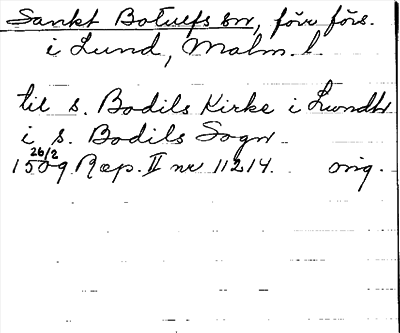 Sankt Botulfs sn, förr förs.
i Lund, Malm. l.
til s. Bodils Kirke i Lundh
i s. Bodils Sogn
26/2
1509 Rep. II nr 11214. orig.